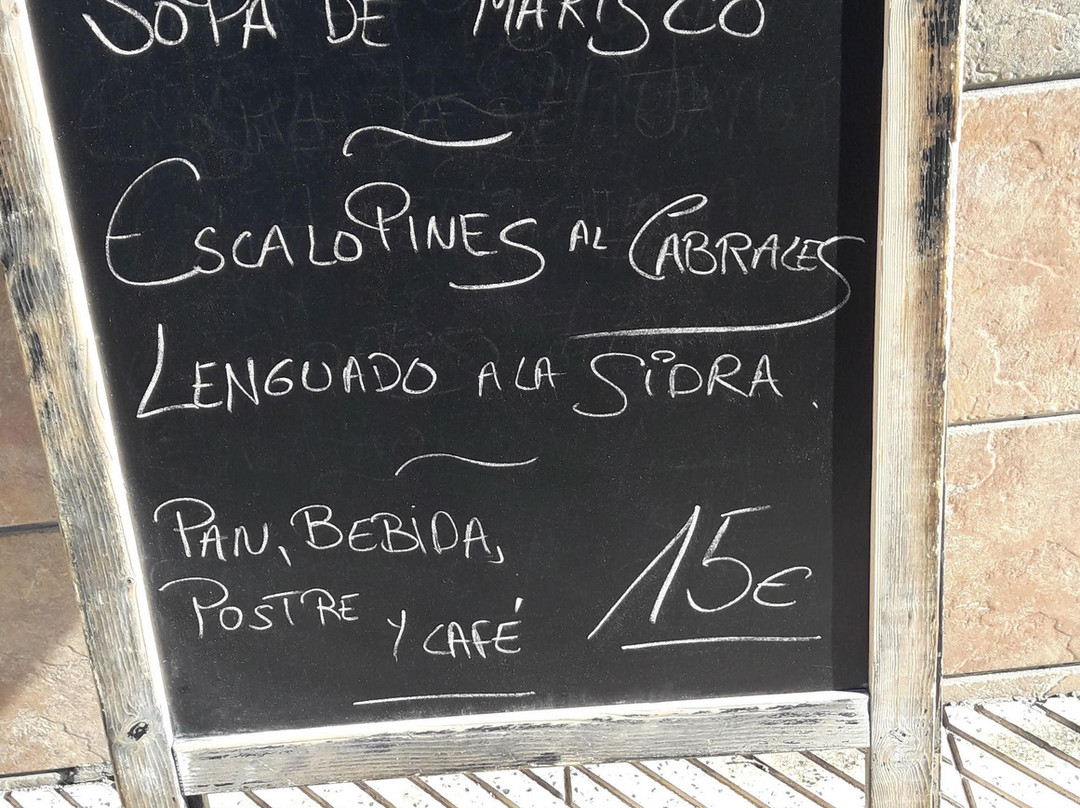 SOPA DE MARISCO
ESCALOPINES AL CABRALES
LENGUADO A LA SIDRA.
PAN, BEBIDA,
POSTRE Y CAFÉ
15€